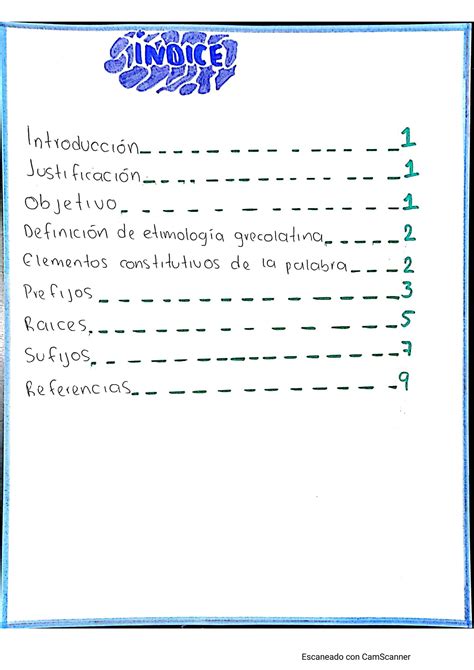 ÍNDICE
Introducción 1
Justificación 1
Objetivo 1
Definición de etimología grecolatina 2
Elementos constitutivos de la palabra 2
Prefijos 3
Raices 5
Sufijos 7
Referencias 9
Escaneado con CamScanner